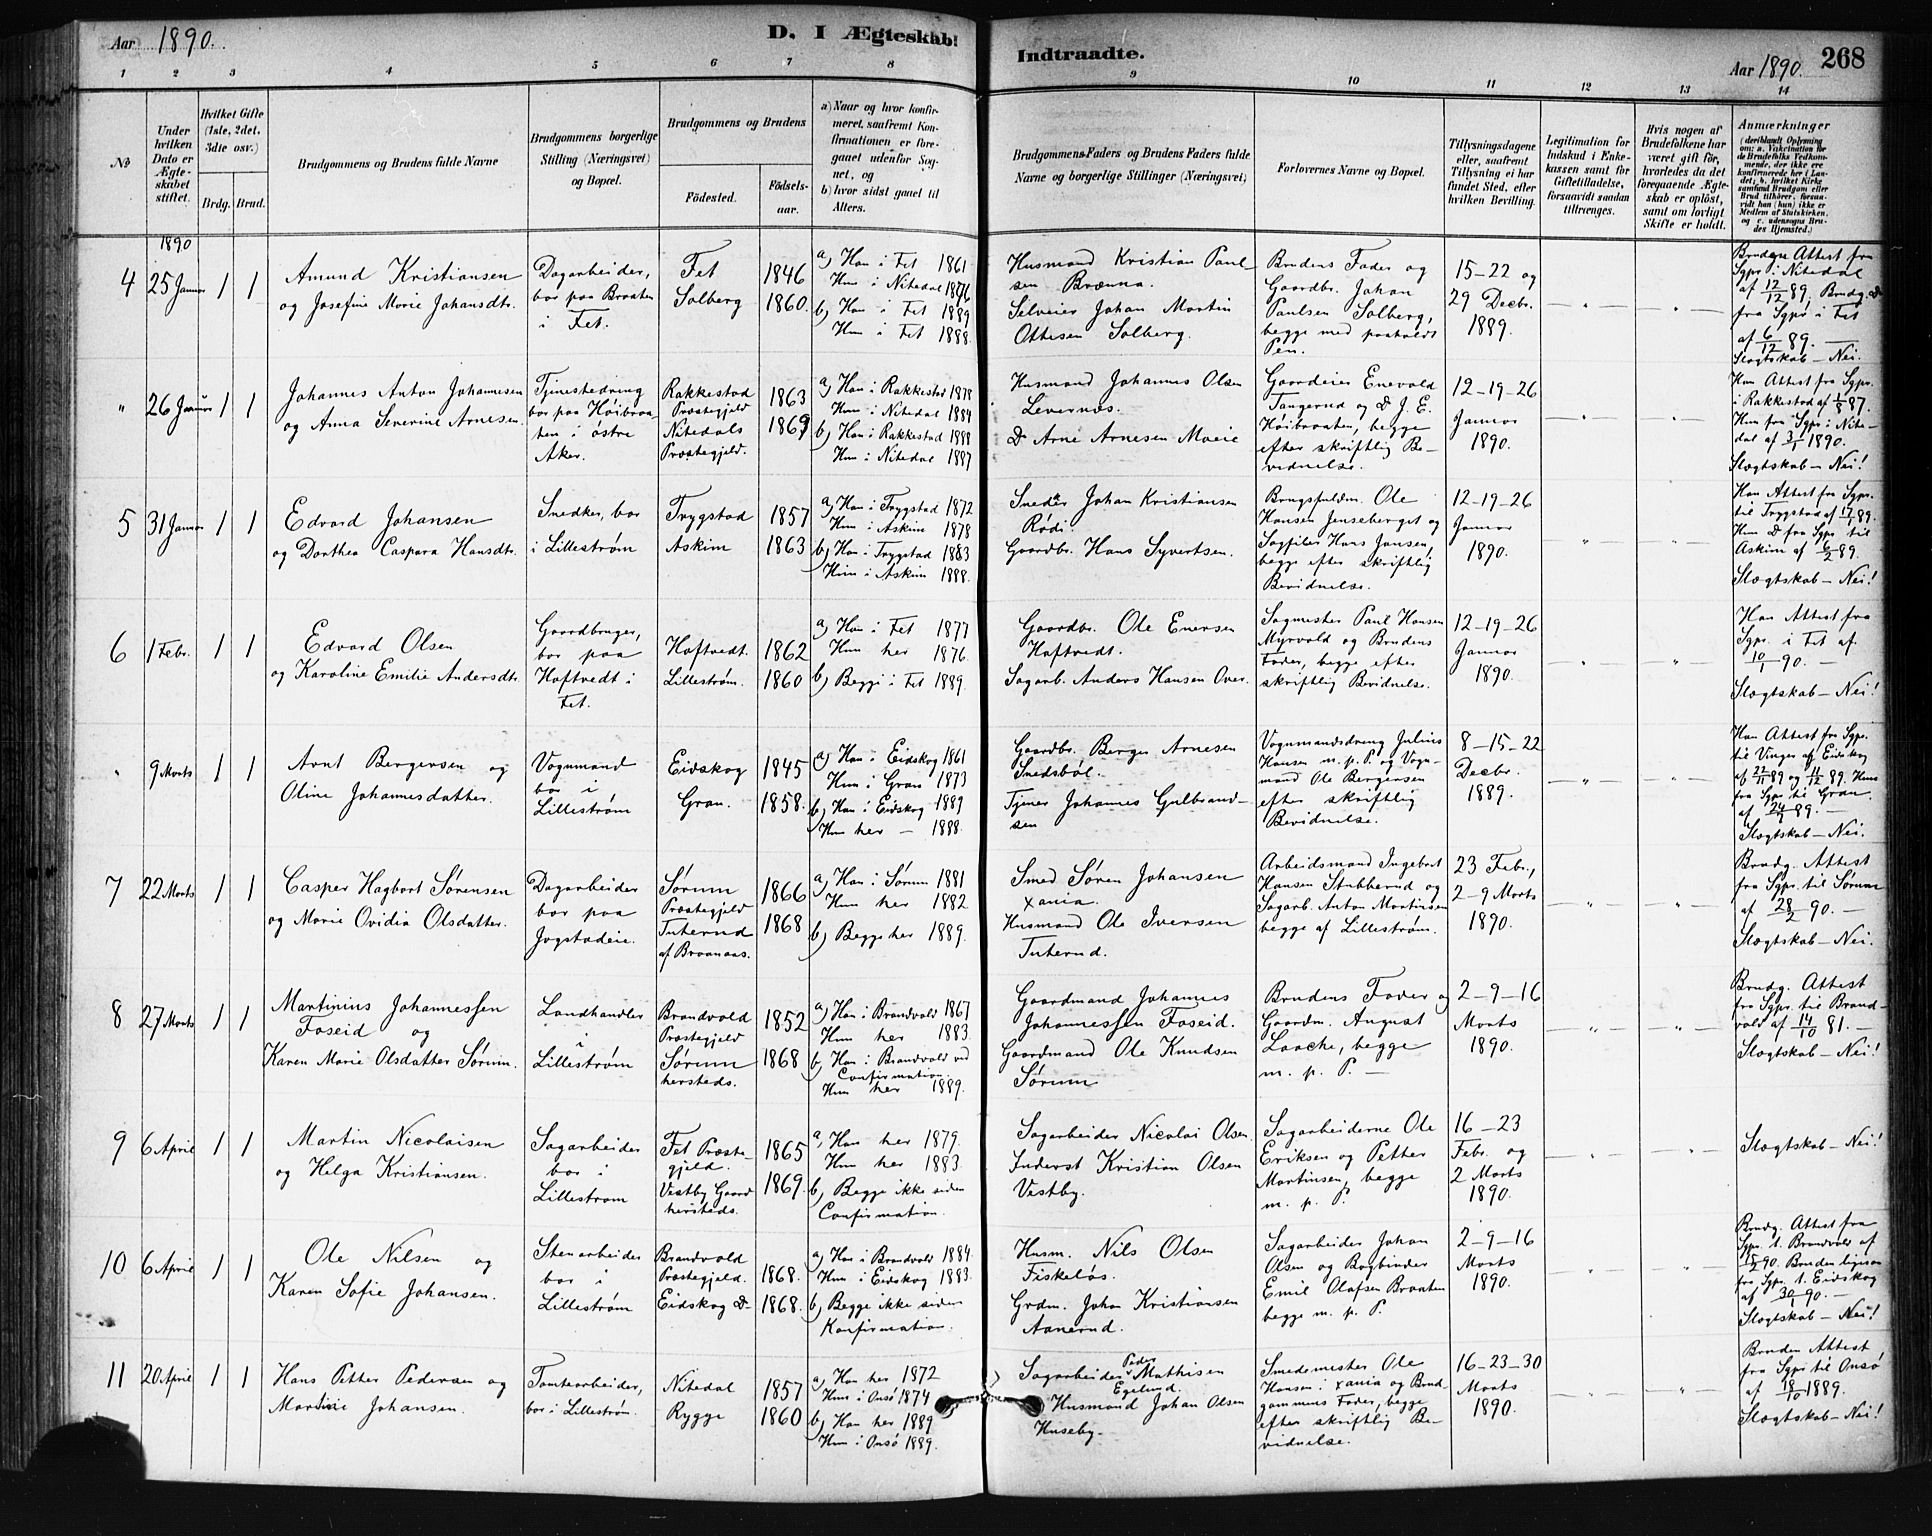 Aar 1890.
D. I Ægteskab
Indtraadte.
Aar 1890.
268
1 2 3 4 5 6 7 8 9 10 11 12 13 14
No
Under hvilken Dato er Ægteskabet stiftet.
Hvilket Gifte (1ste, 2det, 3die osv.)
Brdg. Brud.
Brudgommens og Brudens fulde Navne
Brudgommens borgerlige Stilling (Næringsvei) og Bopæl.
Brudgommens og Brudens
Fødested.
Fødsels-aar.
a) Naar og hvor konfirmeret, saafremt Konfirmationen er foregaaet udenfor Sognet, og
b) hvor sidst gaaet til Alters.
Brudgommens Faders og Brudens Faders fulde Navne og borgerlige Stillinger (Næringsvei)
Forlovernes Navne og Bopæl.
Tillysningsdagene eller, saafremt Tillysning ei har fundet Sted, efter hvilken Bevilling.
Legitimation for Indskud i Enkekassen samt for Giftetilladelse, forsaavidt saadan tiltrænges.
Hvis nogen af Brudefolkene har været gift før, hvorledes da det foregaaende Ægteskab er opløst, samt om lovligt Skifte er holdt.
Anmærkninger
(deriblandt Oplysning om: a. Vakcination for de Brudefolks Vedkommende, der ikke ere konfirmerede her i Landet; b. hvilket Kirkesamfund Brudgom eller Brud tilhører, forsaavidt han (hun) ikke er Medlem af Statskirken, og c. udensogns Brudes Hjemsted.)
1890
4
25 Januar
1 1
Amund Kristiansen
og Josefine Marie Johansdtr.
Dagarbeider,
bor paa Braaten
i Fet.
Fet 1846
Solberg 1860.
a) Han i Fet 1861
Hun i Nitedal 1876
b) Han i Fet 1889
Hun i Fet 1888.
Husmand Kristian Paul
sen Brænna.
Selveier Johan Martin
Ottesen Solberg.
Brudens Fader og
Gaardbr. Johan
Paulsen Solberg,
begge med paaholdt
Pen.
15–22 og
29 Decbr.
1889.
Brudens Attest fra
Sgpr. i Nitedal
af 12/12 89, Brudg. D
fra Sgpr. i Fet
af 6/12 89. —
Slægtskab – Nei.
"
26 Januar
1 1
Johannes Anton Johannesen
og Anna Severine Arnesen.
Tjenestedreng
bor paa Høibraa-
ten i østre
Aker.
Rakkestad
Præstegjeld 1863
Nitedals 1869
Præstegjeld.
a) Han i Rakkestad 1878
Hun i Nitedal 1884
b) Han i Rakkestad 1888
Hun i Nitedal 1887
Husmand Johannes Olsen
Levernæs.
D Arne Arnesen Moeie
Gaardeier Enevold
Tangerud og D J. E.
Høibraaten, begge
efter skriftlig Be-
vidnelse.
12–19–26
Januar
1890.
Han Attest fra Sgpr.
i Rakkestad af 1/8 87.
Hun fra Sgpr. i Nite-
dal af 3/1 1890.
Slægtskab – Nei!
5
31 Januar
1 1
Edvard Johansen
og Dorthea Caspara Hansdtr.
Snedker, bor
i Lillestrøm
Trygstad 1857
Askim 1863
a) Han i Trygstad 1872
Hun i Askim 1878
b) Han i Trygstad 1883
Hun i Askim 1888.
Sneder Johan Kristiansen
Rødi.
Gaardbr. Hans Syvertsen.
Brugsfuldm. Ole
Hansen Jenseberget og
Sagfiler Hans Jansen,
begge efter skriftlig
Bevidnelse.
12–19–26
Januar
1890.
Han Attest fra Sgpr.
til Trygstad af 17/1 89.
Hun D fra Sgpr. til
Askim af 6/2 89.
Slægtskab – Nei!
6
1 Febr.
1 1
Edvard Olsen
og Karoline Emilie Andersdtr.
Gaardbruger,
bor paa
Haftvedt i
Fet.
Haftvedt. 1862
Lillestrøm. 1860
a) Han i Fet 1877
Hun her 1876.
b) Begge i Fet 1889.
Gaardbr. Ole Enersen
Haftvedt.
Sagarb. Anders Hansen Over.
Sagmester Paul Hansen
Myrvold og Brudens
Fader, begge efter
skriftlig Bevidnelse.
12–19–26
Januar
1890.
Han Attest fra
Sgpr. i Fet af
10/1 90. —
Slægtskab – Nei!
"
9 Marts
1 1
Arnt Bergersen og
Oline Johannesdatter.
Vognmand
bor i
Lillestrøm
Eidskog 1845
Gran. 1858.
a) Han i Eidskog 1861
Hun i Gran 1873
b) Han i Eidskog 1889
Hun her – 1888.
Gaardbr. Berger Arnesen
Snedsböl.
Tjener Johannes Gulbrand-
sen
Vognmandsdreng Julius
Hansen m. p. P. og Vogn-
mand Ole Bergersen
efter skriftlig
Bevidnelse.
8–15–22
Decbr.
1889.
Han Attest fra Sgpr.
til Vinger af Eidskog
af 22/11 89 og 11/12 89. Hun
fra Sgpr. til Gran
af 24/9 89. —
Slægtskab – Nei.
7
22 Marts
1 1
Casper Hagbart Sørensen
og Marie Ovidia Olsdatter.
Dagarbeider
bor paa
Jogstadeie.
Sørum
Præstegjeld 1866
Tuterud 1868
af Braanaas.
a) Han i Sørum 1881
Hun her 1882
b) Begge her 1889.
Smed Søren Johansen
Xania.
Husmand Ole Iversen
Tuterud.
Arbeidsmand Ingebret
Hansen Stubberud og
Sagarb. Anton Martinsen
begge af Lillestrøm.
23 Febr.,
2–9 Marts
1890.
Brudg. Attest
fra Sgpr. til Sørum
af 28/2 90. —
Slægtskab – Nei.
8
27 Marts
1 1
Martinius Johannessen
Foseid og
Karen Marie Olsdatter Sørum.
Landhandler
i
Lillestrøm
Brandvold
Præstegjeld 1852
Sørum 1868
hersteds.
a) Han i Brandvold 1867
Hun her 1883.
b) Han i Brandvold ved
Confirmation.
Hun her 1889.
Gaardmand Johannes
Johannessen Foseid.
Gaardmand Ole Knudsen
Sørum
Brudens Fader og
Gaardm. August
Laache, begge
m. p. P. —
2–9–16
Marts
1890.
Brudg. Attest
fra Sgpr. til Brand-
vold af 14/10 81. —
Slægtskab – Nei!
9
6 April
1 1
Martin Nicolaisen
og Helga Kristiansen.
Sagarbeider
bor i
Lillestrøm
Fet Præste-
gjeld. 1865
Vestby Gaard 1869.
hersteds.
a) Han her 1879.
Hun her 1883.
b) Begge ikke siden
Confirmation.
Sagarbeider Nicolai Olsen.
Inderst Kristian Olsen
Vestby.
Sagarbeiderne Ole
Eriksen og Petter
Martinsen, begge
m. p. P.
16–23
Febr. og
2 Marts
1890.
Slægtskab – Nei!
10
6 April
1 1
Ole Nilsen og
Karen Sofie Johansen.
Stenarbeider
bor i
Lillestrøm
Brandvold
Præstegjeld. 1868.
Eidskog D– 1868.
a) Han i Brandvold 1884.
Hun i Eidskog 1883.
b) Begge ikke siden
Konfirmation.
Husm. Nils Olsen
Fiskeløs.
Grdm. Johan Kristiansen
Aanerud.
Sagarbeider Johan
Olsen og Bogbinder
Emil Olafsen Braaten
begge m. p. P.
2–9–16
Marts
1890.
Brudg. Attest fra
Sgpr. t. Brandvold af
15/2 90. Bruden ligesaa
fra Sgpr. t. Eidskog
af 30/1 90. —
Slægtskab – Nei!
11
20 April
1 1
Hans Petter Pedersen og
Mardie Johansen.
Tomtearbeider,
bor i Lillestrøm.
Nitedal 1857
Rygge 1860
a) Han her 1872
Hun i Onsö 1874
b) Han her 1889
Hun i Onsö 1889.
Sagarbeider Peder Mathisen
Egelund.
Husmand Johan Olsen
Huseby.
Smedemester Ole
Hansen i Xania og Brud-
gommens Fader, begge
efter skriftlig Be-
vidnelse.
16–23–30
Marts
1890.
Bruden Attest
fra Sgpr til Onsö
af 18/10 1889.
Slægtskab – Nei!